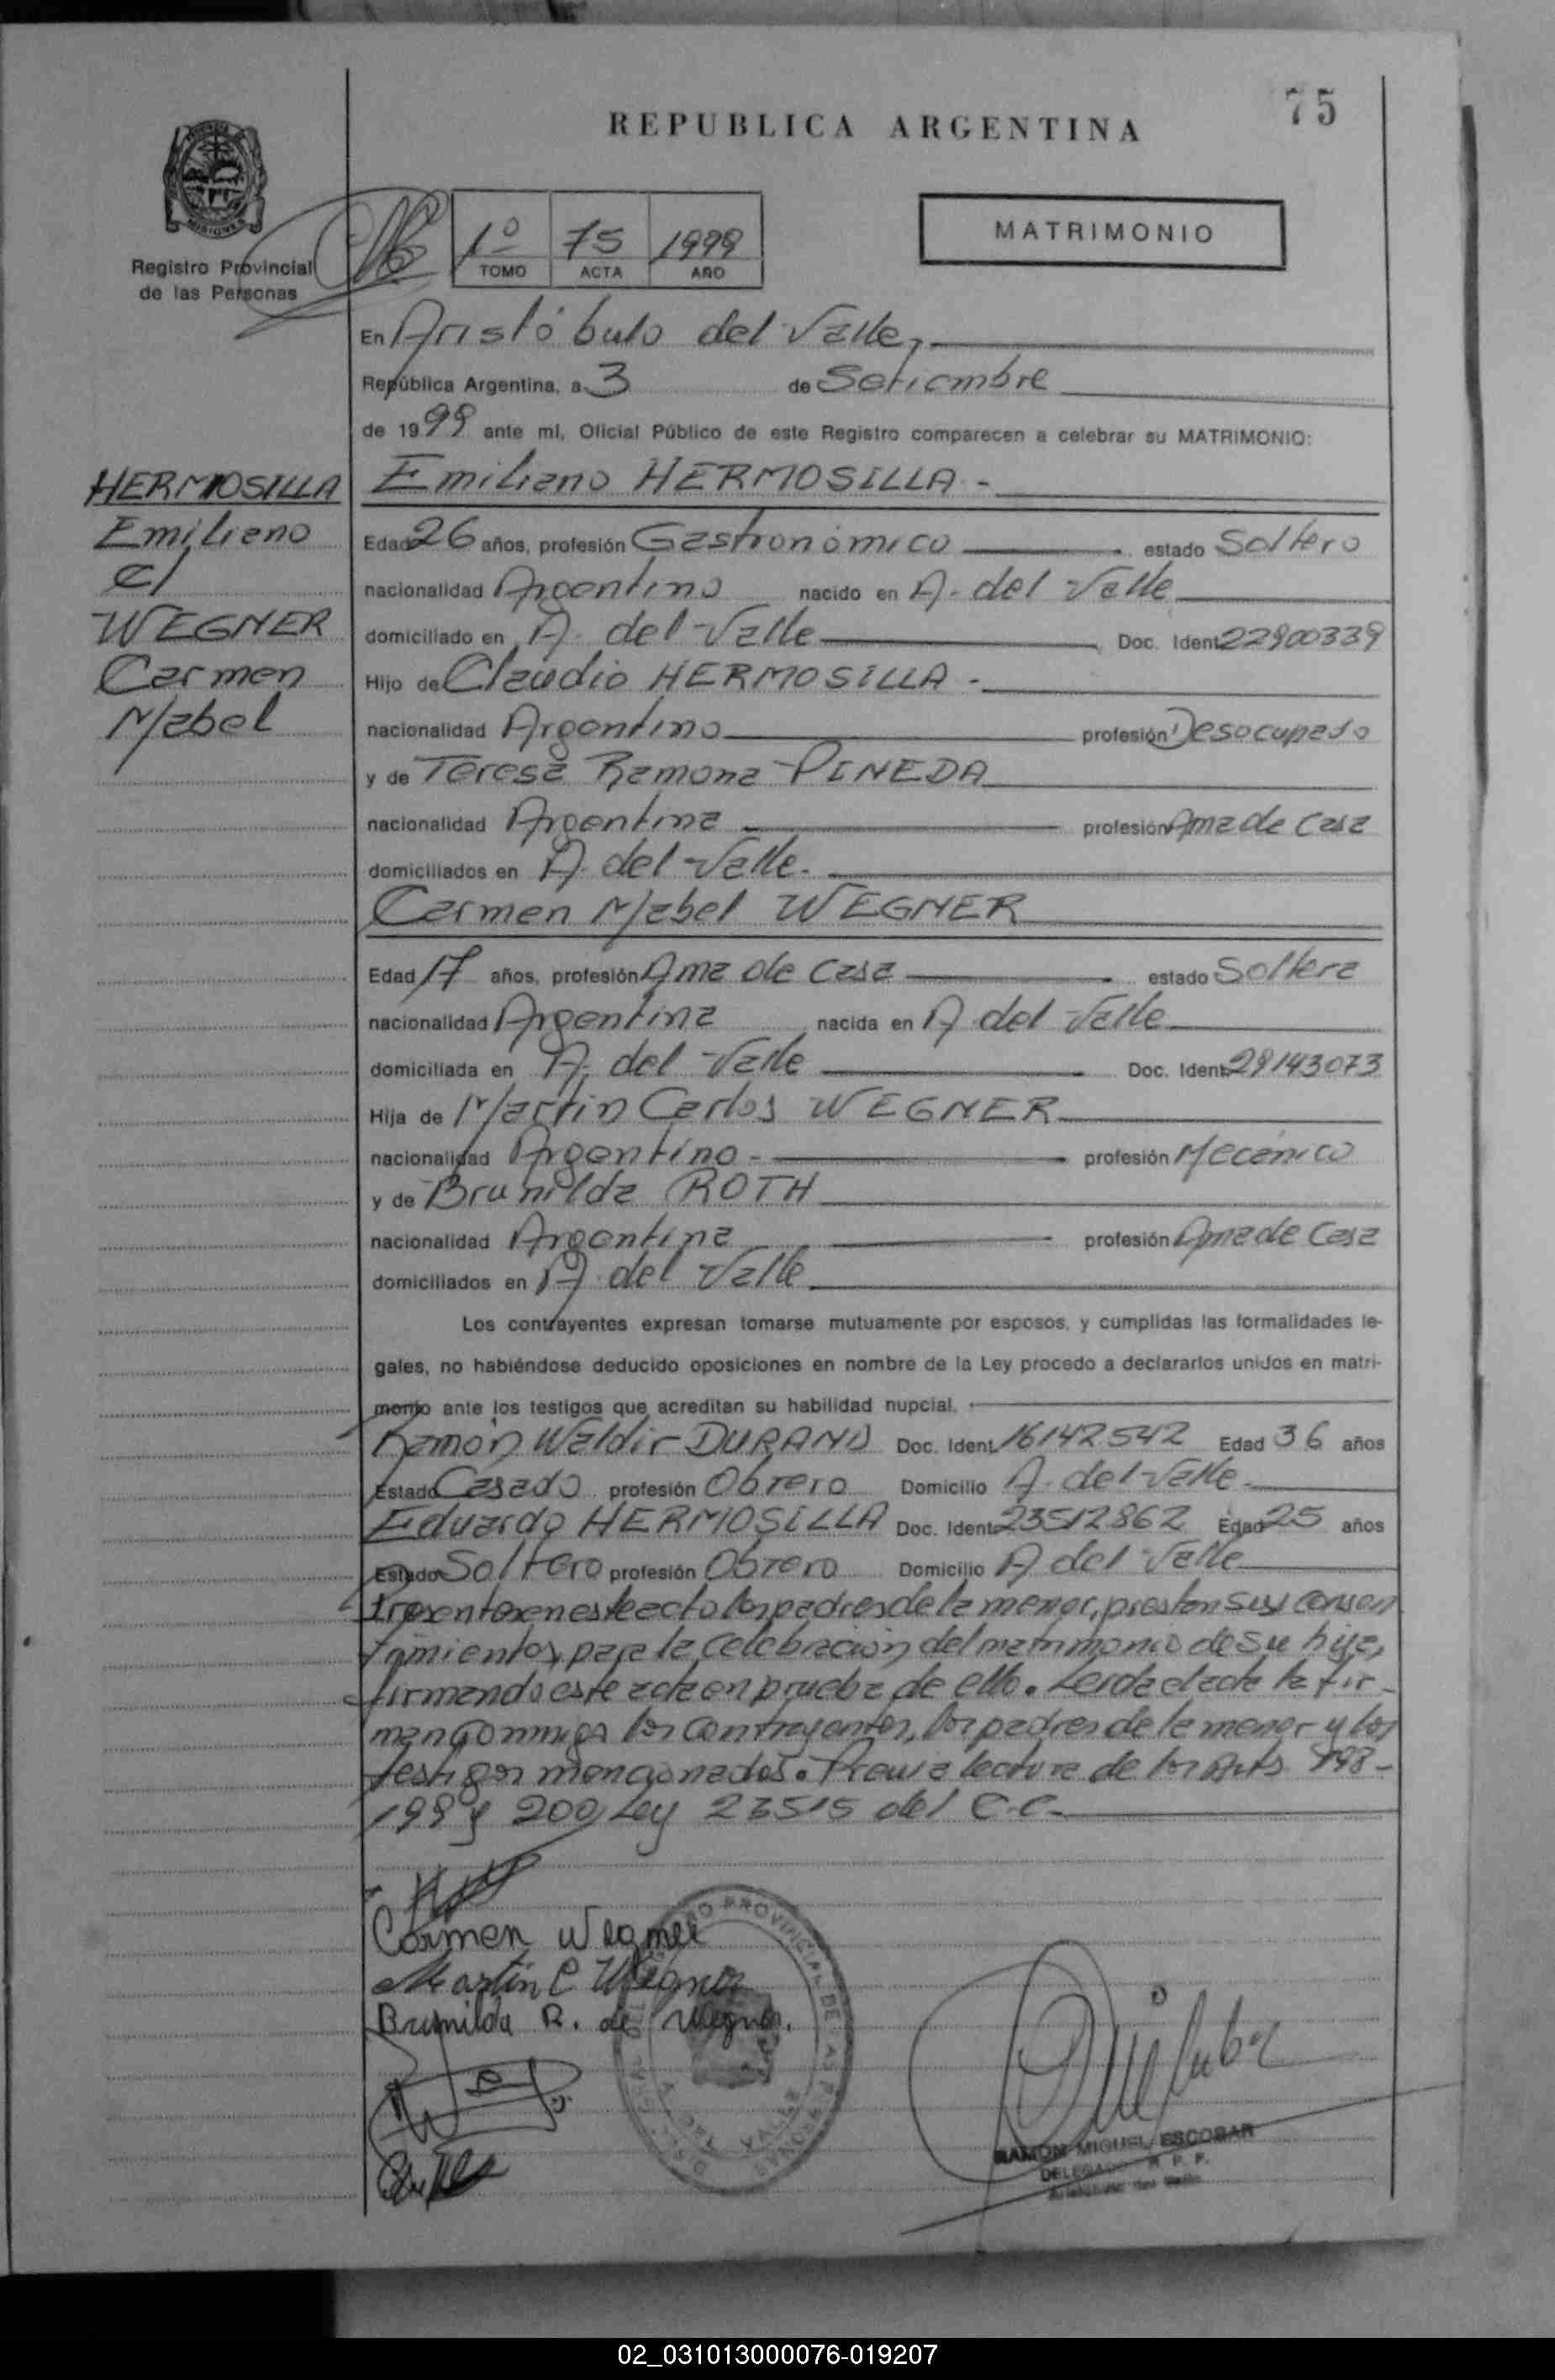 75
REPUBLICA ARGENTINA
MISIONES
Registro Provincial
de las Personas
1º 75 1999
TOMO ACTA AÑO
MATRIMONIO
En Aristóbulo del Valle,
República Argentina, a 3 de Setiembre
de 1999 ante mí, Oficial Público de este Registro comparecen a celebrar su MATRIMONIO:
HERMOSILLA
Emiliano
c/
WEGNER
Carmen
Mabel
Emiliano HERMOSILLA -
Edad 26 años, profesión Gastronómico estado Soltero
nacionalidad Argentino nacido en A. del Valle
domiciliado en A. del Valle Doc. Ident. 22900339
Hijo de Claudio HERMOSILLA -
nacionalidad Argentino profesión Desocupado
y de Teresa Ramona PINEDA
nacionalidad Argentina profesión Ama de Casa
domiciliados en A. del Valle.
Carmen Mabel WEGNER
Edad 17 años, profesión Ama de Casa estado Soltera
nacionalidad Argentina nacida en A del Valle
domiciliada en A. del Valle Doc. Ident. 29143073
Hija de Martin Carlos WEGNER
nacionalidad Argentino - profesión Mecánico
y de Brunilda ROTH
nacionalidad Argentina profesión Ama de Casa
domiciliados en A. del Valle
Los contrayentes expresan tomarse mutuamente por esposos, y cumplidas las formalidades le-
gales, no habiéndose deducido oposiciones en nombre de la Ley procedo a declararlos unidos en matri-
monio ante los testigos que acreditan su habilidad nupcial.
Ramón Waldir DURAND Doc. Ident. 16142542 Edad 36 años
Estado Casado profesión Obrero Domicilio A. del Valle.
Eduardo HERMOSILLA Doc. Ident. 23512862 Edad 25 años
Estado Soltero profesión Obrero Domicilio A del Valle
Presentes en este acto los padres de la menor, prestan sus consen
timientos para la celebración del matrimonio de su hija,
firmando este acta en prueba de ello. Leida el acta la fir-
man conmigo los contrayentes, los padres de la menor y los
testigos mencionados. Previa lectura de los Arts 198-
199 y 200 Ley 23515 del C.C.
Carmen Wegner
Martin C Wegner
Brunilda R. de Wegner.
REGISTRO PROVINCIAL DE LAS PERSONAS
DEL VALLE
RAMON MIGUEL ESCOBAR
DELEGADO R. P. P.
Aristóbulo del Valle
02_031013000076-019207